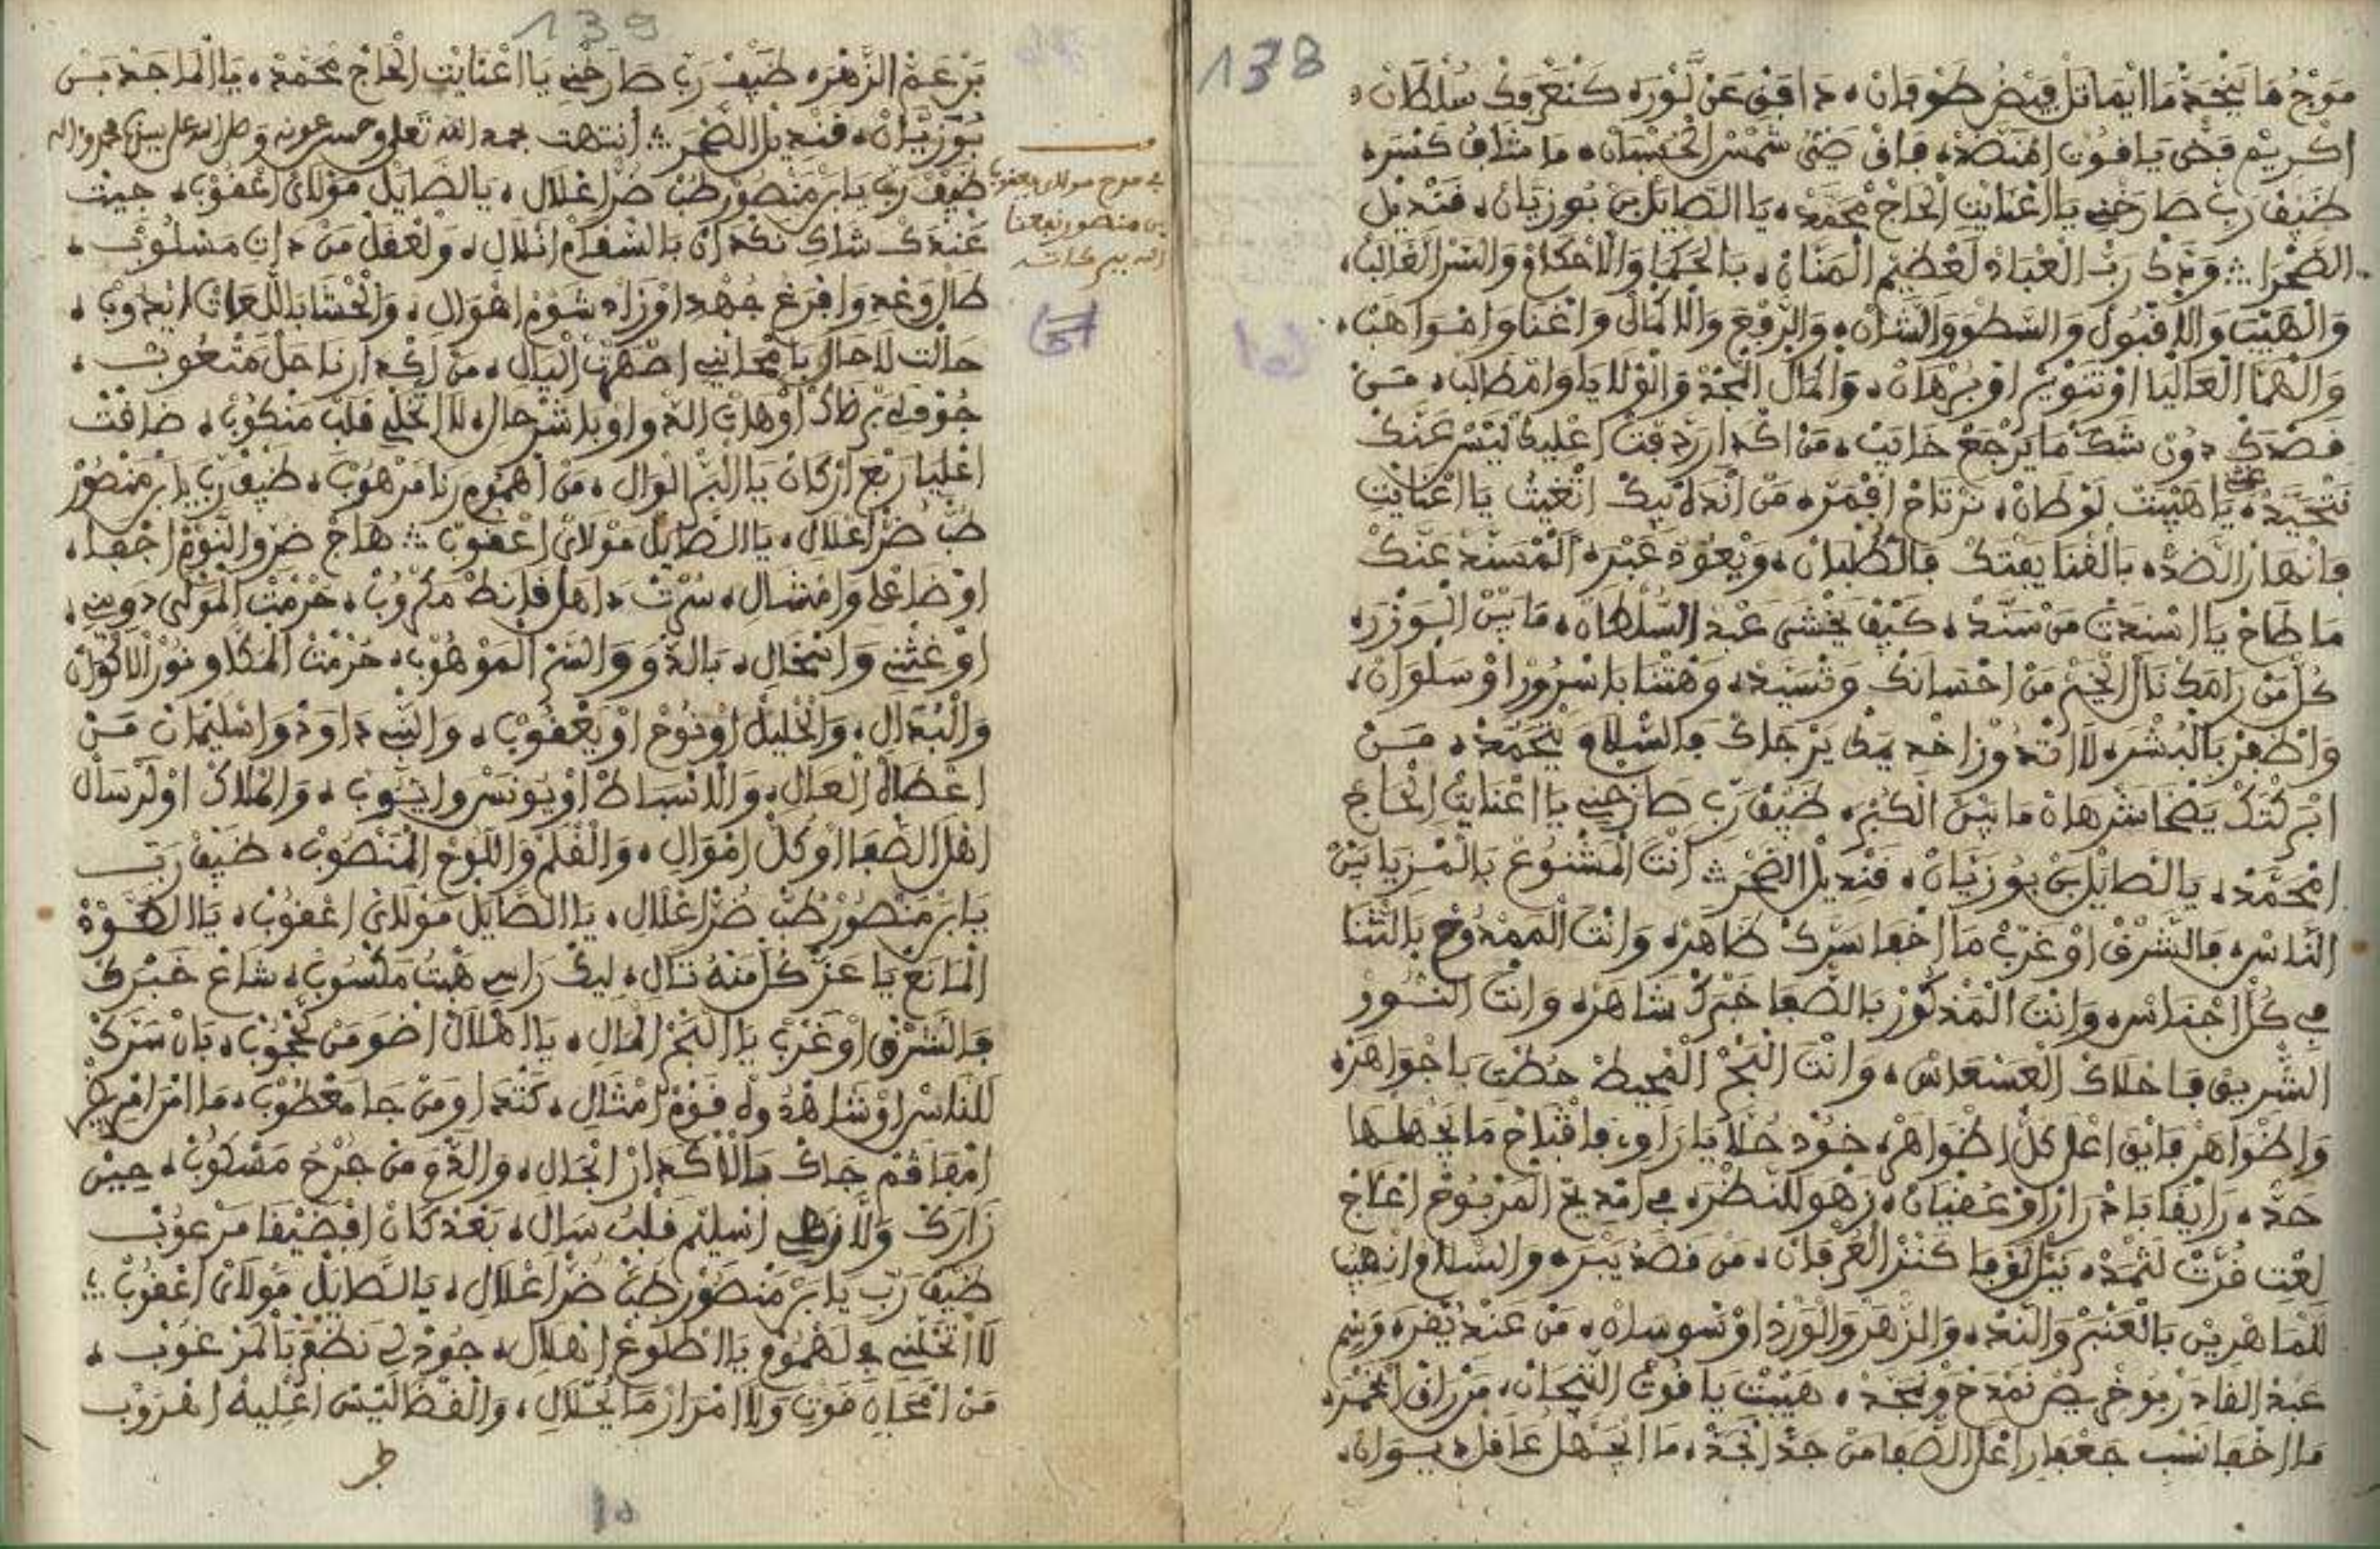 138
موج ما يجحد ما ايماثل فيض طوفان، دافق عن لورَه كنعروك سلطان،
اكريم فضى ياقوت امنضد، فاق ضي شمس الحسان، ما شاف كنسره
ضيف رب صارخني يا اغنايت الحاج محمد، يا الصايل بن بوزيان، قنديل
الصحرا ؞ ونذك رب العباد لعظيم المنان، بالحكما والاحكام والسر الغالب،
والهيب والاقبول والسطو والشان، والرفع والاكمال واغنا وامواهب،
والهما العاليا اوتنوير اوبرهان، والمال المجد والولايا وامطالب، من
قصدك دون شك ما يرجع خايب، من اكدار ردقت اعليك ليسر عنك
يا هيبت لوطان، ترتاح اقمره، من اندلا بيك اتغيث يا اغنايت
وانهار الضد، بالفنا يفتك فالطبان، ويعود عبره المسند عنك
ما طاح يا اسندت من سند، كيف يخشى عبد السلطان، ما بين الوزره
كل من رامك نال الخير من احسانك وتسيد، وهتنا باسرور اوسلوان،
واظفر بالبشره لا اتدوز اخديمك يرجاك فالسلام يتحمد، من
ابركتك يضحا شرهان ما بين الكبره ضيف رب صارخني يا اغنايت الحاج
امحمد، يا الصايل بن بوزيان، قنديل الصحر ؞ انت المشنوع بالمزيا بين
الناس، فالشرق اوغرب ما اخفا سرك ظاهر، وانت الممدوح بالثنا
في كل اجناس، وانت المذكور بالصفا خبرك شاهر، وانت النور
الشريق فاحلاك العسعاس، وانت البحر المحيط حطت باجواهر،
واظواهر فايق اعلى كل اظواهر، خود حلا يا راوي فاقباح ما يجهلها
حد، رايقا بادرار اوعقيان، زهو للنظره في امديح المربوح اعلاج
لغت فرت لثمد، كنز العرفان، من قصد يبره والسلام انهيب
للماهرين بالعنبر والند، والزهر والورد اوسوسان، من عند يقره وسم
عبد القادر بوخريص نمدح ونجد، هيبت ياقوت التيجان، مرزاق الحمره
ما اخفا نسب جعفر اعلى الصفا من جد الجد، ما ايجهل عاقل ديوان،
139
برعم الزهره ضيف رب صارخني يا اغنايت الحاج محمد، يا الماجد بن
بوزيان، قنديل الصحر ؞ انتهت بحمد الله تعلى وحسن عونه وصلى الله على سيدنا محمد واله
ضيف رب يا بن منصور طب ضر اعلال، يا الصايل مولاي اعقوب، جيت
عندك شاكي نكداري بالسقام انلال، ولعقل من داي مسلوب،
طال وغدي وافرغ جهدي اوزاد شوم اهوال، والحشا باللعات ايدوب،
حالت لا حال يا محايني اصهرت اليال، من اكدار نا حل متعوب،
جوف لي برظاك اوهات الدوا وبا شرحال، لا اتخلي قلب منكوب، ضاقت
اعليا ربع اركان يا البر الوال، من اهموم رنا مرهوب، ضيف رب يا بن منصور
طب ضر اعلال، يا الصايل مولاي اعقوب ؞ هاج ضر والنوم اجفا،
اوضاعلي وامشال، سرت داهل فانط مكروب، حرمت المولى دوني،
اوغثني وانجال، بالدوو والسر الموهوب، حرمت المكلا ونور الاكوان
والبدال، والخليل اونوح اويعقوب، والنبي داود واسليمان من
اعطاه العال، والاسباط اويونس وايوب، والملاك اولرسال
اهل الصفا اوكل اموال، والقلم واللوح المنصوب، ضيف رب
يا بن منصور طب ضر اعلال، يا الصايل مولاي اعقوب، يا الطود
المانع يا عز كل منه نال، ليك راسي هبت ملسوب، شاع خبرك
فالشرق اوغرب يا البحر المال، يا الهلال اضو من محجوب، بان سرك
للناس اوشاهدوله قوم امثال، كتداوي من جا معطوب، ما امرامريض
امفاقم جاك بالاكدار انجال، والدوي من جرح مسكوب، حين
زارك ولا زهي اسليم قلب سال، بعد كان افضيقا مرعوب
ضيف رب يا بن منصور طب ضر اعلال، يا الصايل مولاي اعقوب ؞
لا اتخلني في لهموم يا اطلوع اهلال، جود لي نظفر بالمرغوب،
من امحاي قوت ولا امرار ما يحلال، والفظا ليس اعليه اهروب
في مدح مولاي يعقوب
بن منصور نفعنا
الله ببركاته